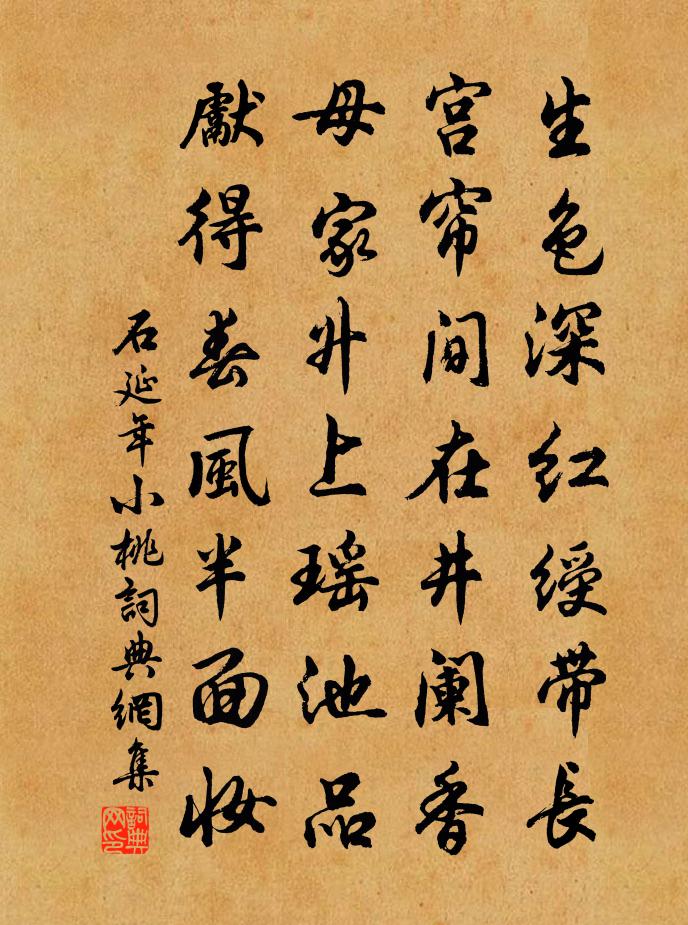 生色深红綬带長
宫帘间在井阑香
母家升上瑶池品
獻得春風半面妆
石延年小桃詞典網集
詞典网印